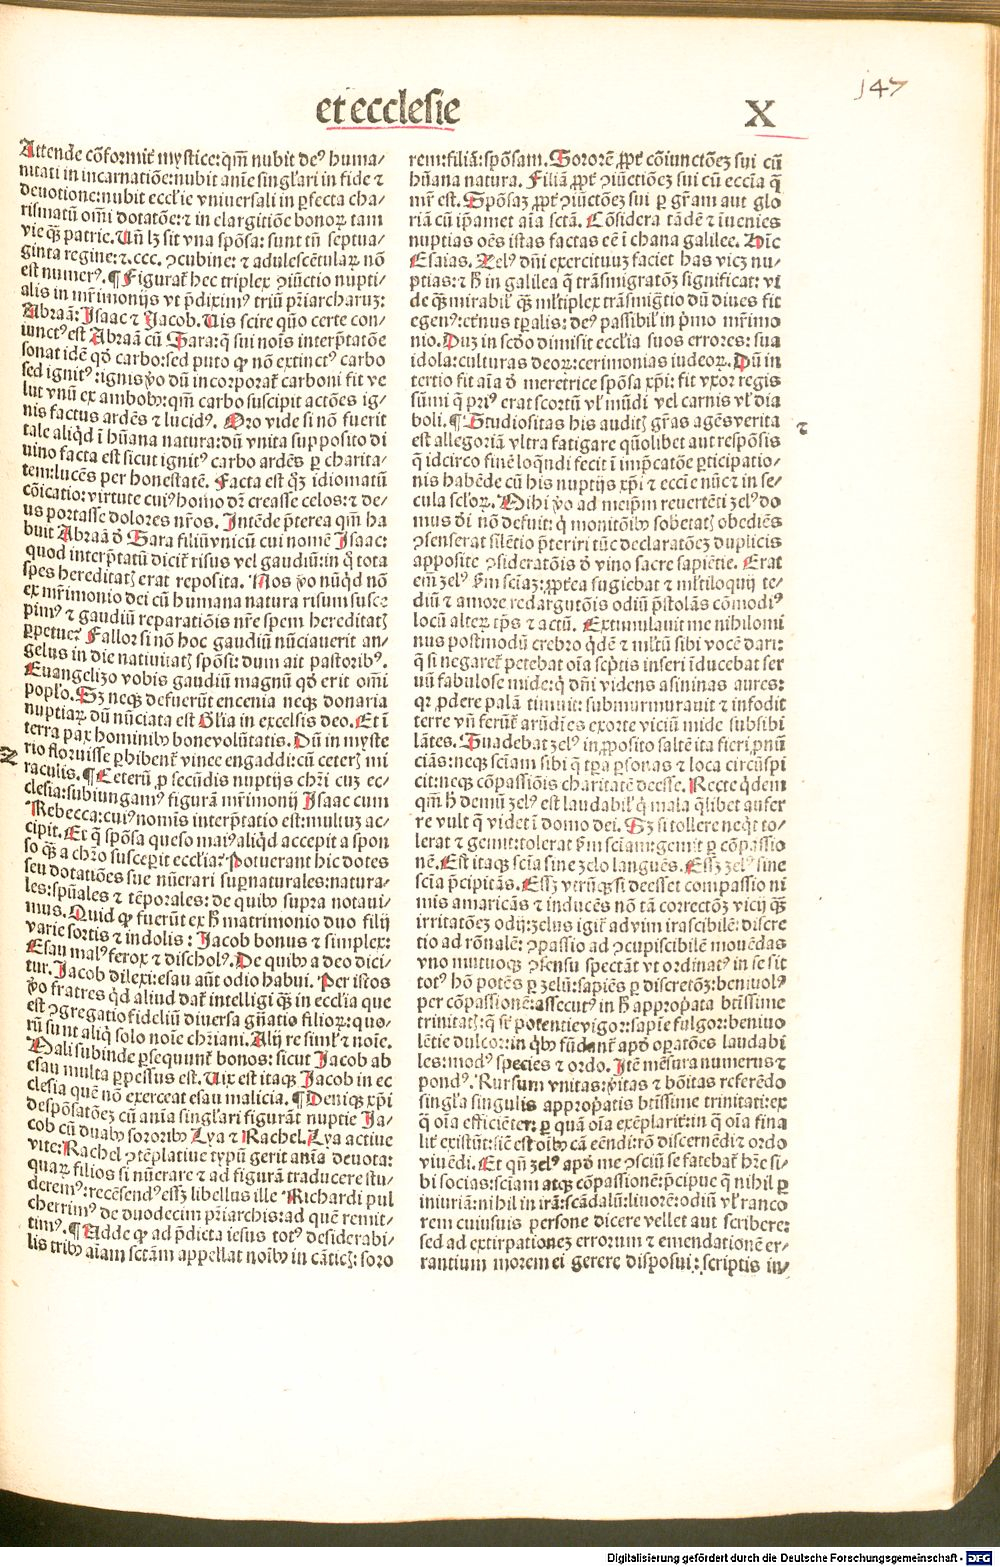 147
et ecclesie
X
Attende cõformit̃ mystice: qm̃ nubit deꝰ huma-
nitati in incarnatiõe: nubit anie singl̃ari in fide ⁊
deuotione: nubit eccl̃ie vniuersali in ꝑfecta cha-
rismatũ om̃i dotatõe: ⁊ in elargitiõe bonoꝝ tam
vie qꝫ patrie. Uñ lꝫ sit vna spõsa: sunt tñ septua-
ginta regine: ⁊ .ccc. ꝯcubine: ⁊ adulescẽtularꝝ nõ
est numerꝰ. ¶ Figurat̃ hec triplex ꝯiũctio nupti-
alis in mr̃imonijs vt p̃diximꝰ triũ pr̃iarcharuꝫ:
Abraã: Isaac ⁊ Jacob. Uis scire quõ certe con-
iunctꝰ est Abraã cũ Sara: q̃ sui nois̃ interp̃tatõe
sonat idẽ qd̃ carbo: sed puto ꝙ nõ extinctꝰ carbo
sed ignitꝰ: ignis ṽo dũ incorporat̃ carboni fit ve
lut vnũ ex amboƀ: qm̃ carbo suscipit actões ig-
nis factus ardẽs ⁊ lucidꝰ. Oro vide si nõ fuerit
tale aliq̇d ĩ hũana natura: dũ vnita supposito di
uino facta est sicut ignitꝰ carbo ardẽs ꝑ charita-
tem: lucẽs per honestatẽ. Facta est q̃ꝫ idiomatũ
cõicatio: virtute cuiꝰ homo dr̃ creasse celos: ⁊ de-
us portasse dolores nr̃os. Intẽde p̃terea qm̃ ha
buit Abraã d̃ Sara filiũ vnicũ cui nomẽ Isaac:
quod interp̃tatũ dicit̃ risus vel gaudiũ: in q̃ tota
spes hereditatꝭ erat reposita. Nos ṽo nũqd̃ nõ
ex mr̃imonio dei cũ humana natura risum susce
pimꝰ ⁊ gaudiũ reparatiõis nr̃e spem hereditatꝭ
ꝑpetue? Fallor si nõ hoc gaudiũ nũciauerit an-
gelus in die natiuitatꝭ spõsi: dum ait pastoribꝰ.
Euangelizo vobis gaudiũ magnũ qd̃ erit om̃i
popl̃o. Sꝫ neqꝫ defuerũt encenia neqꝫ donaria
nuptiaꝝ dũ nũciata est Gl̃ia in excelsis deo. Et ĩ
terra pax hominiƀ bonevolũtatis. Dũ in myste
rio floruisse ꝑhibent̃ vinee engaddi: cũ ceterꝭ mi
raculis. ¶ Ceterũ ꝓ secũdis nuptijs chr̃i cuꝫ ec-
clesia: subiungamꝰ figurã mr̃imonij Isaac cum
Rebecca: cuiꝰ nomis̃ interp̃tatio est: multuꝫ ac-
cipit. Et q̃ spõsa queso maiꝰ aliq̇d accepit a spon
so qꝫ a chr̃o susceꝑit eccl̃ia? Potuerant hic dotes
seu dotatiões sue nũerari suꝑnaturales: natura-
les: spũales ⁊ tẽporales: de quiƀ supra notaui-
mus. Quid ꝙ fuerũt ex h̃ matrimonio duo filij
varie sortis ⁊ indolis: Jacob bonus ⁊ simplex:
Esau malꝰ ferox ⁊ discholꝰ. De quiƀ a deo dici-
tur. Jacob dilexi: esau aũt odio habui. Per istos
ṽo fratres q̇d aliud dat̃ intelligi qꝫ in eccl̃ia que
est ꝯgregatio fideliũ diuersa gñatio filioꝝ: quo-
rũ sunt aliq̃ solo noie chr̃iani. Alij re sunt ⁊ noie.
Mali subinde ꝑsequunt̃ bonos: sicut Jacob ab
esau multa ꝑpessus est. Uix est itaqꝫ Jacob in ec
clesia quẽ nõ exerceat esau malicia. ¶ Deniqꝫ xp̃i
despõsatõeꝫ cũ anĩa singl̃ari figurãt nuptie Ja-
cob cũ duaƀ sororiƀ Lya ⁊ Rachel. Lya actiue
vite: Rachel ꝯtẽplatiue typũ gerit anĩa deuota:
quaꝝ filios si nũerare ⁊ ad figurã traducere stu-
deremꝰ: recẽsendꝰ essꝫ libellus ille Richardi pul
cherrimꝰ de duodecim pr̃iarchis: ad quẽ remit-
timꝰ. ¶ Adde ꝙ ad p̃dicta iesus totꝰ desiderabi-
lis triƀ aĩam sctãm appellat noĩƀ in cãticꝭ: soro
rem: filiã: spõsam. Sororẽ ꝓpt̃ cõiunctõeꝫ sui cũ
hũana natura. Filiã ꝓpt̃ ꝯiũctiõeꝫ sui cũ eccĩa q̃
mr̃ est. Spõsaꝫ ꝓpt̃ ꝯiũctõeꝫ sui ꝑ gr̃am aut glo
riã cũ ip̃amet aĩa sctã. Cõsidera tãdẽ ⁊ iuenies
nuptias oẽs istas factas eẽ ĩ chana galilee. Hĩc
Esaias. Zelꝰ dñi exercituuꝫ faciet has viꝫ nu-
ptias: ⁊ h̃ in galilea q̃ trãsmigratõꝫ significat: vi
de qꝫ mirabil̃ qꝫ ml̃tiplex trãsmigr̃tio dũ diues fit
egenꝰ: eternus tꝑalis: deꝰ passibil̃ in p̃mo mr̃imo
nio. Duꝫ in scd̃o dimisit eccl̃ia suos errores: sua
idola: culturas deoꝝ: cerimonias iudeoꝝ. Dũ in
tertio fit aĩa d̃ meretrice spõsa xp̃i: fit vxor regis
sũmi q̃ priꝰ erat scortũ vl̃ mũdi vel carnis vl̃ dia
boli. ¶ Studiositas his auditꝭ gr̃as agẽs verita
est allegoriã vltra fatigare quõlibet aut respõsis
q̃ idcirco finẽ loq̃ndi fecit ĩ imp̃catõe ꝑticipatio-
nis habẽde cũ his nuptijs xp̃i ⁊ eccĩe nũc ⁊ in se-
cula scl̃oꝝ. Mihi ṽo ad meip̃m reuertẽti zelꝰ do
mus d̃i nõ defuit: q̃ monitõiƀ sobrietatꝭ obediẽs
ꝯsenserat silẽtio p̃teriri tũc declaratõeꝫ duplicis
apposite ꝯsideratõis d̃ vino sacre sapiẽtie. Erat
em̃ zelꝰ h̃m sciaꝫ: ꝓptẽa fugiebat ⁊ ml̃tiloquij te-
diũ ⁊ amore redargutõis odiũ p̃stolãs cõmodiꝰ
locũ alteꝝ tp̃s ⁊ actũ. Extimulauit me nihilomi
nus postmodũ crebro q̇dẽ ⁊ ml̃tũ sibi vocẽ dari:
q̃ si negaret̃ petebat oĩa sc̃ptis inseri ĩducebat ser
uũ fabulose mide: q̃ dñi videns asininas aures:
qꝛ ꝓdere palã timuit: submurmurauit ⁊ infodit
terre vñ ferũt̃ arũdĩes exorte viciũ mide subsibi
lãtes. Suadebat zelꝰ in ꝓposito saltẽ ita fieri ꝓnũ
ciãs: neqꝫ sciam sibi q̃ tꝑa ꝑsonas ⁊ loca circũspi
cit: neqꝫ cõpassiõis charitatẽ deesse. Recte q̇dem
qm̃ h̃ demũ zelꝰ est laudabil̃ q̃ mala q̃libet aufer
re vult q̃ videt ĩ domo dei. Sꝫ si tollere neq̃t to-
lerat ⁊ gemit: tolerat h̃m sciam: gemit ꝑ cõpassio
nẽ. Est itaqꝫ scĩa sine zelo languẽs. Essꝫ zelꝰ sine
scĩa p̃cipitãs. Essꝫ vtrũqꝫ si deesset compassio ni
mis amaricãs ⁊ inducẽs nõ tã correctõꝫ vicij qꝫ
irritatõeꝫ odij: zelus igit̃ ad vim irascibilẽ: discre
tio ad rõnalẽ: ꝯpassio ad ꝯcupiscibilẽ mouẽdas
vno mutuoqꝫ ꝯsensu spectãt vt ordinatꝰ in se sit
totꝰ hõ potẽs ꝑ zelũ: sapiẽs ꝑ discretõꝫ: beniuolꝰ
per cõpassionẽ: assecutꝰ in h̃ approp̃ata btĩssime
trinitatꝭ: q̃ st̃ potentie vigor: sapie fulgor: beniuo
lẽtie dulcor: in q̇ƀ fũdant̃ apd̃ oꝑatões laudabi
les: modꝰ species ⁊ ordo. Itẽ mẽsura numerus ⁊
pondꝰ. Rursum vnitas: ṽitas ⁊ bõitas referẽdo
singl̃a singulis approp̃atis btĩssime trinitati: ex
q̃ oĩa efficiẽter: ꝑ quã oĩa exẽplarit̃: in q̃ oĩa fina
lit̃ existũt: sic̃ est oiƀ cã eẽndi: rõ discernẽdi ⁊ ordo
viuẽdi. Et qñ zelꝰ apd̃ me ꝯsciũ se fatebat̃ hr̃e si-
bi socias: sciam atqꝫ cõpassionẽ: p̃cipue q̃ nihil ꝑ
iniuriã: nihil in irã: scãdalũ: liuorẽ: odiũ vl̃ ranco
rem cuiusuis persone dicere vellet aut scribere:
sed ad extirpationeꝫ errorum ⁊ emendationẽ er-
rantium morem ei gerere disposui: scriptis in
Digitalisierung gefördert durch die Deutsche Forschungsgemeinschaft - DFG